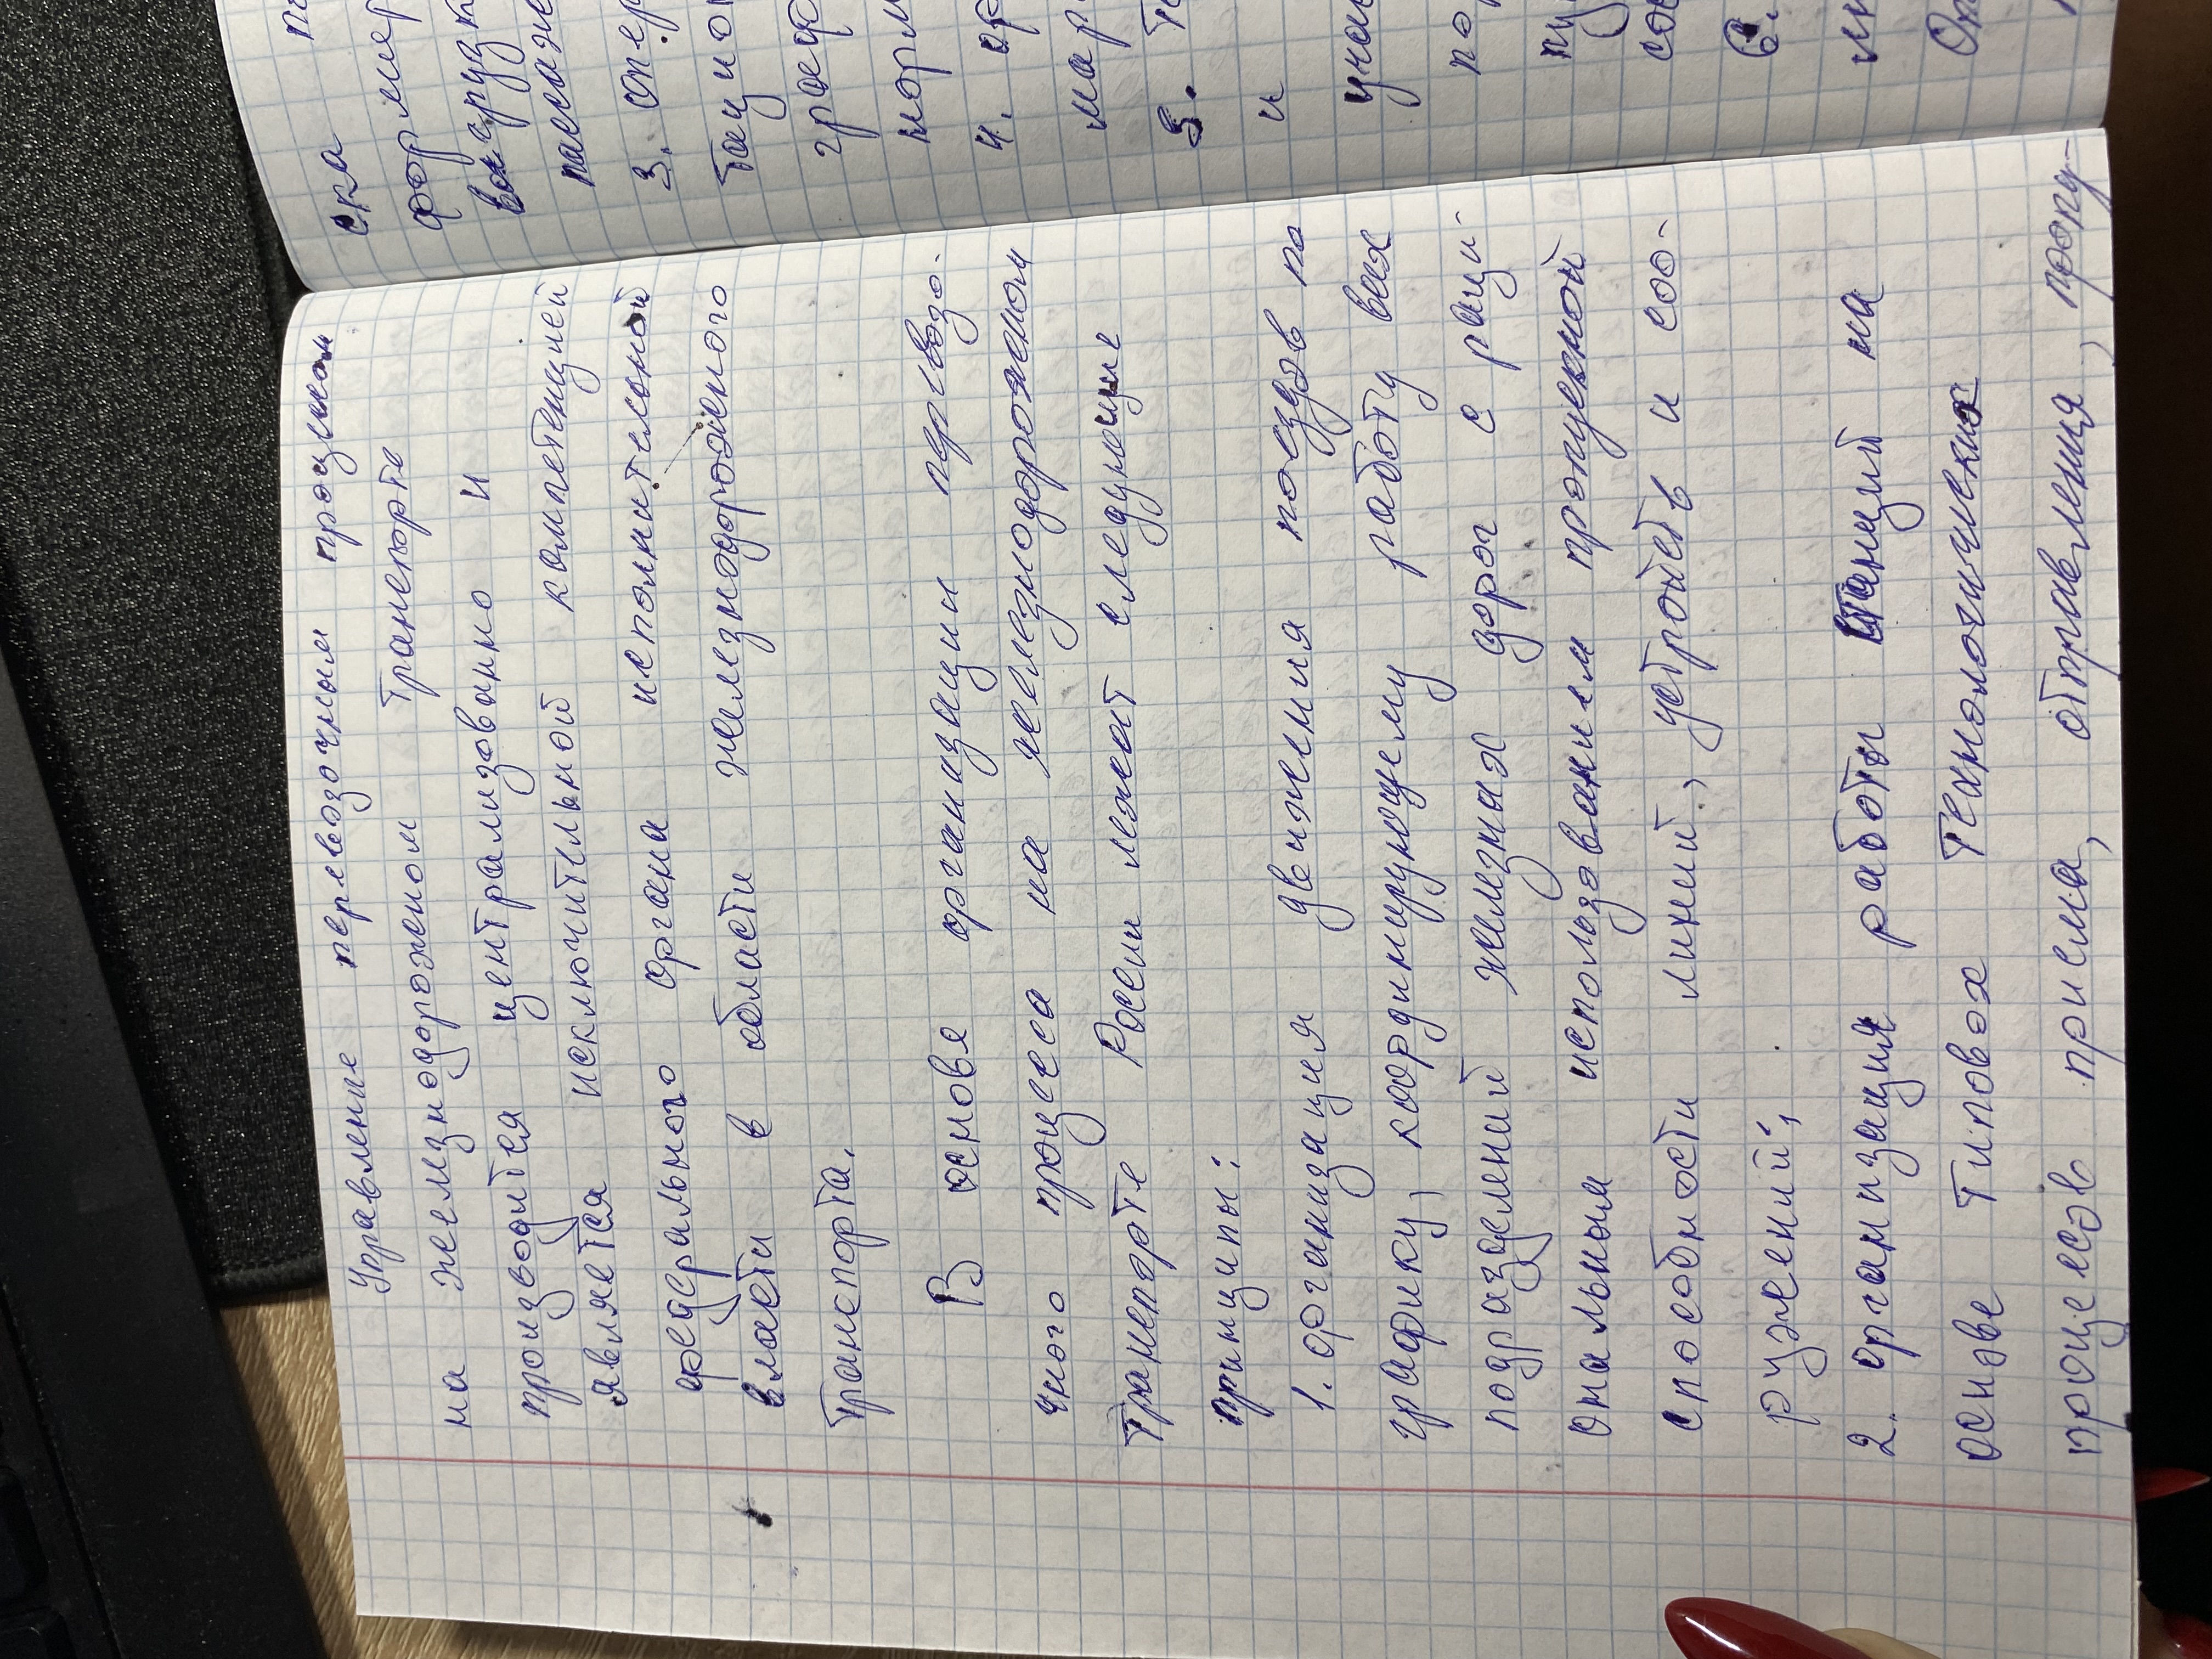 Управление перевозочным процессом
на железнодорожном транспорте
производится централизованно и
является исключительной компетенцией
федерального органа исполнительной
власти в области железнодорожного
транспорта.
В основе организации перевозо-
чного процесса на железнодорожном
транспорте России лежат следующие
принципы:
1. организация движения поездов по
графику, координирующему работу всех
подразделений железных дорог с раци-
ональным использованием пропускной
способности линий, устройств и соо-
ружений;
2. организация работы станций на
основе типовых технологических
процессов приема, отправления, пропу-
ска
формир
3. опер
норм
4. ор
мар
5. т
и
6.